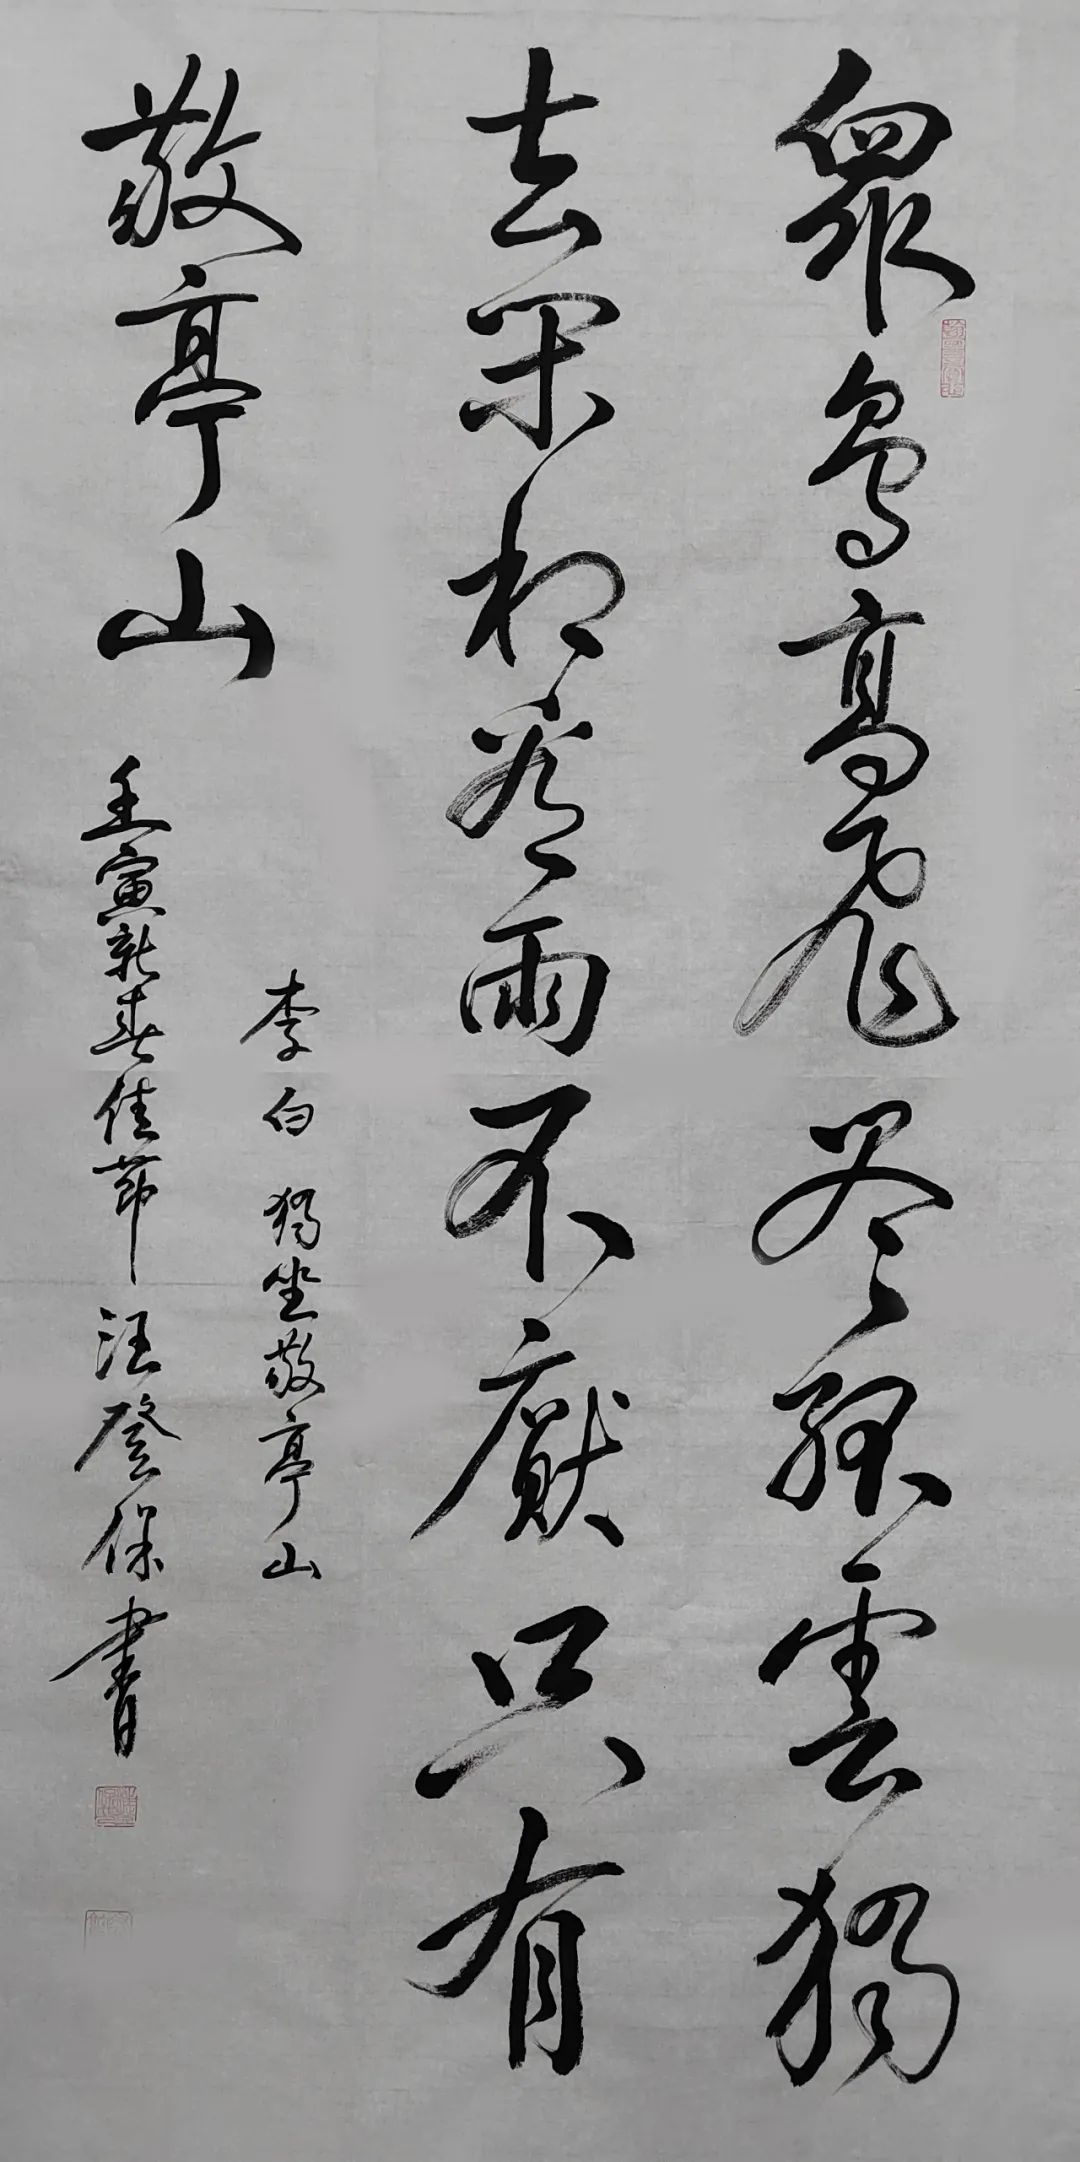 眾鳥高飛尽孤雲獨
去閑相看兩不厭只有
敬亭山
李白 獨坐敬亭山
壬寅新春佳節 汪登保書